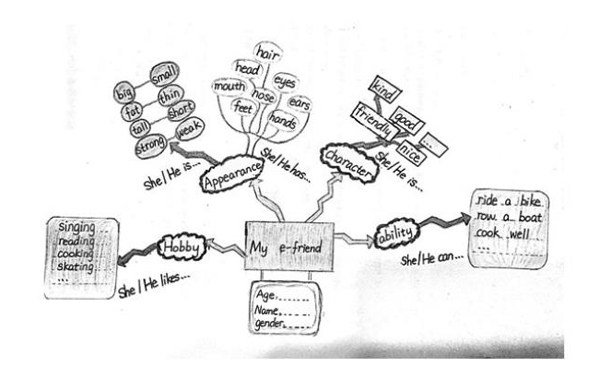 hair
head
eyes
mouth
nose
ears
feet
hands
big
small
fat
thin
tall
short
strong
weak
kind
good
friendly
...
nice
She/He is...
Appearance
She/He has...
Character
She/He is...
Singing...
reading
cooking
skating
...
Hobby
She/He likes...
My e-friend
ability
She/He can...
ride a bike
row a boat
cook well
...
Age.......
Name......
gender......